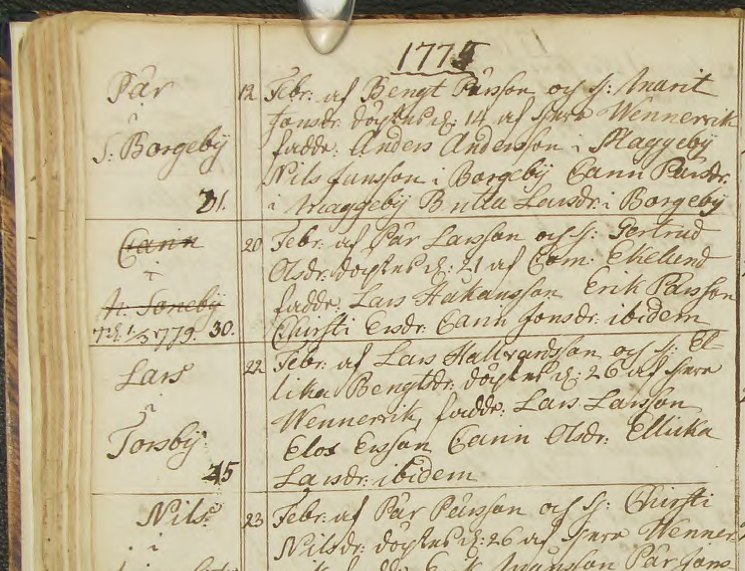 1775
Pär
i
S: Borgeby
21.
12 Febr: af Bengt Pärsson och h: Marit
Jonsdr: döptes d: 14 af herr Wennervik
fadde: Anders Andersson i Maggeby
Nils Jonsson i Borgeby Carin Pärsdr:
i Maggeby Britta Larsdr: i Borgeby
Carin
i
N: Toneby
† d: 1/5 1779. 30.
20 Febr: af Pär Larsson och h: Gertrud
Olsdr: döptes d: 21 af Com: Ekelund
fadde: Lars Håkansson Erik Pärsson
Chirsti Ersdr: Carin Jonsdr: ibidem
Lars
i
Torsby
25
22 Febr: af Lars Hallvardsson och h: El-
lika Bengtsdr: döptes d: 26 af herr
Wennervik, fadde: Lars Larsson
Elof Ersson Carin Olsdr: Ellicka
Larsdr: ibidem
Nils
i
23 Febr: af Pär Pärsson och h: Chirsti
Nilsdr: döptes d: 26 af herr Wenner-